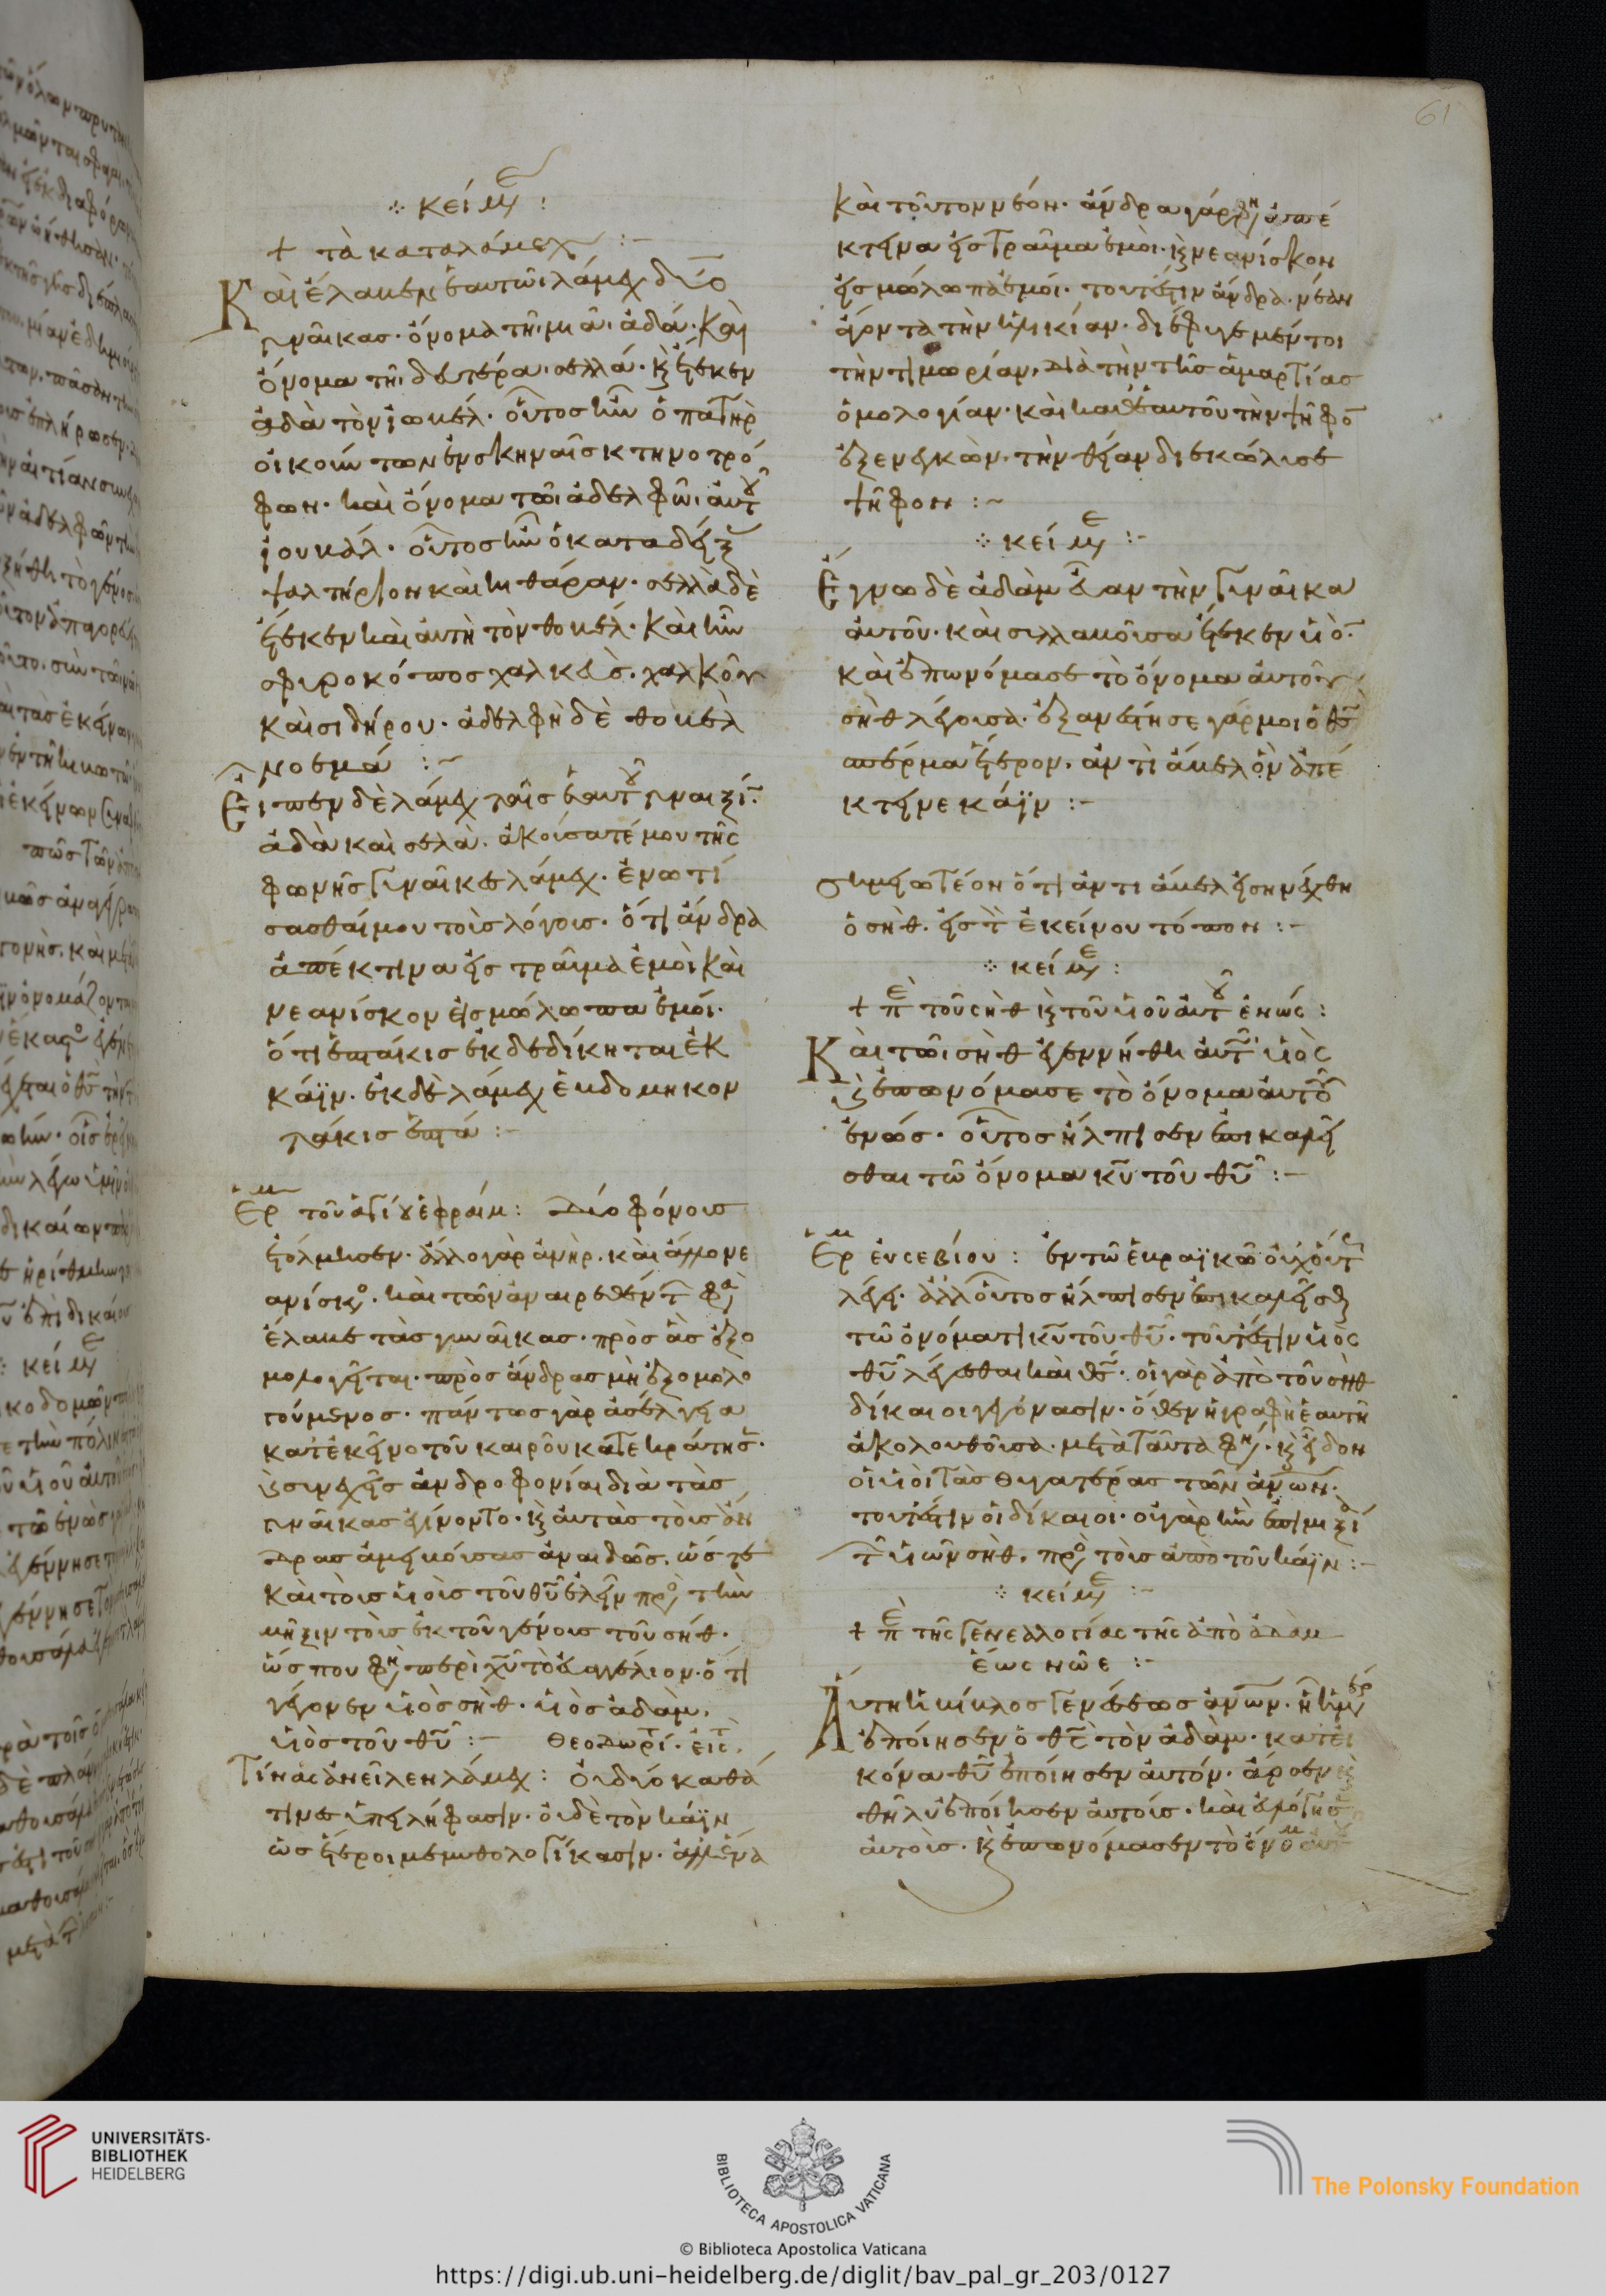 61
κείμε :
+ τὰ κατα λάμεχ :-
Καὶ ἔλαβεν ἑαυτῶι λάμεχ δύο
γυναῖκας· ὄνομα τῆι μιᾶι ἀδά· καὶ
ὄνομα τῆι δευτέρα σελλά· κ(αὶ) ἔτεκεν
ἀδὰ τὸν ἰωβέλ· οὗτος ἦν ὁ πατὴρ
οἰκούντων ἐν σκηναῖς κτηνοτρό
φων· καὶ ὄνομα τῶι ἀδελφῶι αὐτ
ἰουβάλ· οὗτος ἦν ὁ καταδείξ
ψαλτήριον καὶ κιθάραν· σελλὰ δὲ
ἔτεκεν καὶ αὐτὴ τὸν θοβέλ· καὶ ἦν
σφυροκόπος χαλκεὺς· χαλκοῦ
καὶ σιδήρου· ἀδελφὴ δὲ θοβὲλ
νοεμά :~
Εἶπεν δὲ λάμεχ ταῖς ἑαυτ γυναιξί·
ἀδὰ καὶ σελὰ· ἀκούσατέ μου τῆς
φωνῆς γυναῖκες λάμεχ· ἐνωτί
σασθαί μου τοὺς λόγους· ὅτι ἄνδρα
ἀπέκτινα εἰς τραῦμα ἐμοὶ καὶ
νεανίσκον εἰς μώλωπα ἐμοί·
ὅτι ἑπτάκις ἐκδεδίκηται ἐκ
κάϊν· ἐκ δὲ λάμεχ ἑβδομηκον
τάκις ἑπτά :-
Ερμ τοῦ ἁγίου ἐφραίμ : Δύο φόνους
ἐτόλμησεν· ἄλλο γὰρ ἀνὴρ· καὶ ἄλλο νε
ανίσκο· καὶ τῶν ἀναιρεθέντ φα
ἔλαβε τὰς γυναῖκας· πρὸς ἃς ἐξο
μολογεῖται· πρὸς ἄνδρας μὴ ἐξομολο
γούμενος· πάντως γὰρ ἀσέλγεια
κατ' ἐκεῖνο τοῦ καιροῦ κατεκράτησ·
κ(αὶ) συνεχεῖς ἀνδροφονίαι διὰ τὰς
γυναῖκας ἐγίνοντο· κ(αὶ) αὐτὰς τοὺς ἄν
δρας ἀμειβούσας ἀναιδῶς· ὥστε
καὶ τοὺς υἱοὺς τοῦ θυ ἐλθεῖν προ τὴν
μῆξιν τοὺς ἐκ τοῦ γένους τοῦ σήθ·
ὥς που φη περὶ χυ τὸ εὐαγγέλιον· ὅτι
γέγονεν υἱὸς σὴθ· υἱὸς ἀδὰμ·
υἱὸς τοῦ θυ :- Θεοδωρίτ· εἰς·
Τίνας ἀνεῖλεν λάμεχ : οἱ δύο καθά
τινες ὑπειλήφασιν· οἱ δὲ τὸν κάϊν
ὡς ἕτεροι μεμυθολογίκασιν· ἀλλ' ἕνα
καὶ τοῦτον νέον· ἄνδρα γάρ φη ἀπέ
κτεινα εἰς τραῦμα ἐμοὶ· κ(αὶ) νεανίσκον
εἰς μώλωπα ἐμοί· τουτέστιν ἄνδρα· νέαν
ἄγοντα τὴν ἡλικίαν· διέφυγε μέντοι
τὴν τιμωρίαν· διὰ τὴν τῆς ἁμαρτίας
ὁμολογίαν· καὶ καθ' ἑαυτοῦ τὴν ψῆφο
ἐξενεγκὼν· τὴν θείαν διεκώλυσε
ψῆφον :~
κείμε :-
Ἔγνω δὲ ἀδὰμ εὔαν τὴν γυναῖκα
αὐτοῦ· καὶ συλλαβοῦσα ἔτεκεν υἱό·
καὶ ἐπωνόμασε τὸ ὄνομα αὐτοῦ
σὴθ λέγουσα· ἐξανέστησε γάρ μοι ὁ θς
σπέρμα ἕτερον· ἀντὶ ἄβελ ὃν ἀπέ
κτεινε κάϊν :-
σημειωτέον ὅτι ἀντι ἄβελ εἰσηνέχθη
ὁ σὴθ· εἰς τ ἐκείνου τόπον :-
κείμε :
+ πε τοῦ σὴθ κ(αὶ) τοῦ υἱοῦ αὐτ ἐνώς :
Καὶ τῶι σὴθ ἐγεννήθη αὐτ υἱὸς
κ(αὶ) ἐπωνόμασε τὸ ὄνομα αὐτο
ἐνώς· οὗτος ἤλπισεν ἐπικαλεῖ
σθαι τῶ ὄνομα κυ τοῦ θυ :-
Ερμ ἐυσεβίου : ἐν τῶ ἑβραϊκῶ οὐχ οὕτ
λέγει· ἀλλ' οὗτος ἤλπισεν ἐπικαλεῖσθ
τῶ ὀνόματι κυ τοῦ θυ· τουτέστιν υἱὸς
θυ λέγεσθαι καὶ θς· οἱ γὰρ ἀπὸ τοῦ σὴθ
δίκαιοι γεγόνασιν· ὅθεν ἡ γραφὴ ἑαυτῆ
ἀκολουθοῦσα· μετὰ ταῦτα φη· κ(αὶ) εἶδον
οἱ υἱοὶ τὰς θυγατέρας τῶν ἀνων·
τουτέστιν οἱ δίκαιοι· οὐ γὰρ ἦν ἐπιμιξί
τ υἱῶν σὴθ· προ τοὺς ἀπὸ τοῦ κάϊν :-
κείμε :-
+ πε τῆς γενεαλογίας τῆς ἀπὸ ἀδὰμ
ἕως νῶε :-
Αὕτη ἡ βίβλος γενέσεως ἀνων· ἧ ἡμερ
ἐποίησεν ὁ θς τὸν ἀδὰμ· κατ' εἰ
κόνα θυ ἐποίησεν αὐτόν· ἄρσεν κ(αὶ)
θῆλυ ἐποίησεν αὐτούς· καὶ εὐλόγησ
αὐτοὺς· κ(αὶ) ἐπωνόμασεν τὸ ὄνομ
UNIVERSITÄTS-
BIBLIOTHEK
HEIDELBERG
BIBLIOTECA APOSTOLICA VATICANA
The Polonsky Foundation
© Biblioteca Apostolica Vaticana
https://digi.ub.uni-heidelberg.de/diglit/bav_pal_gr_203/0127